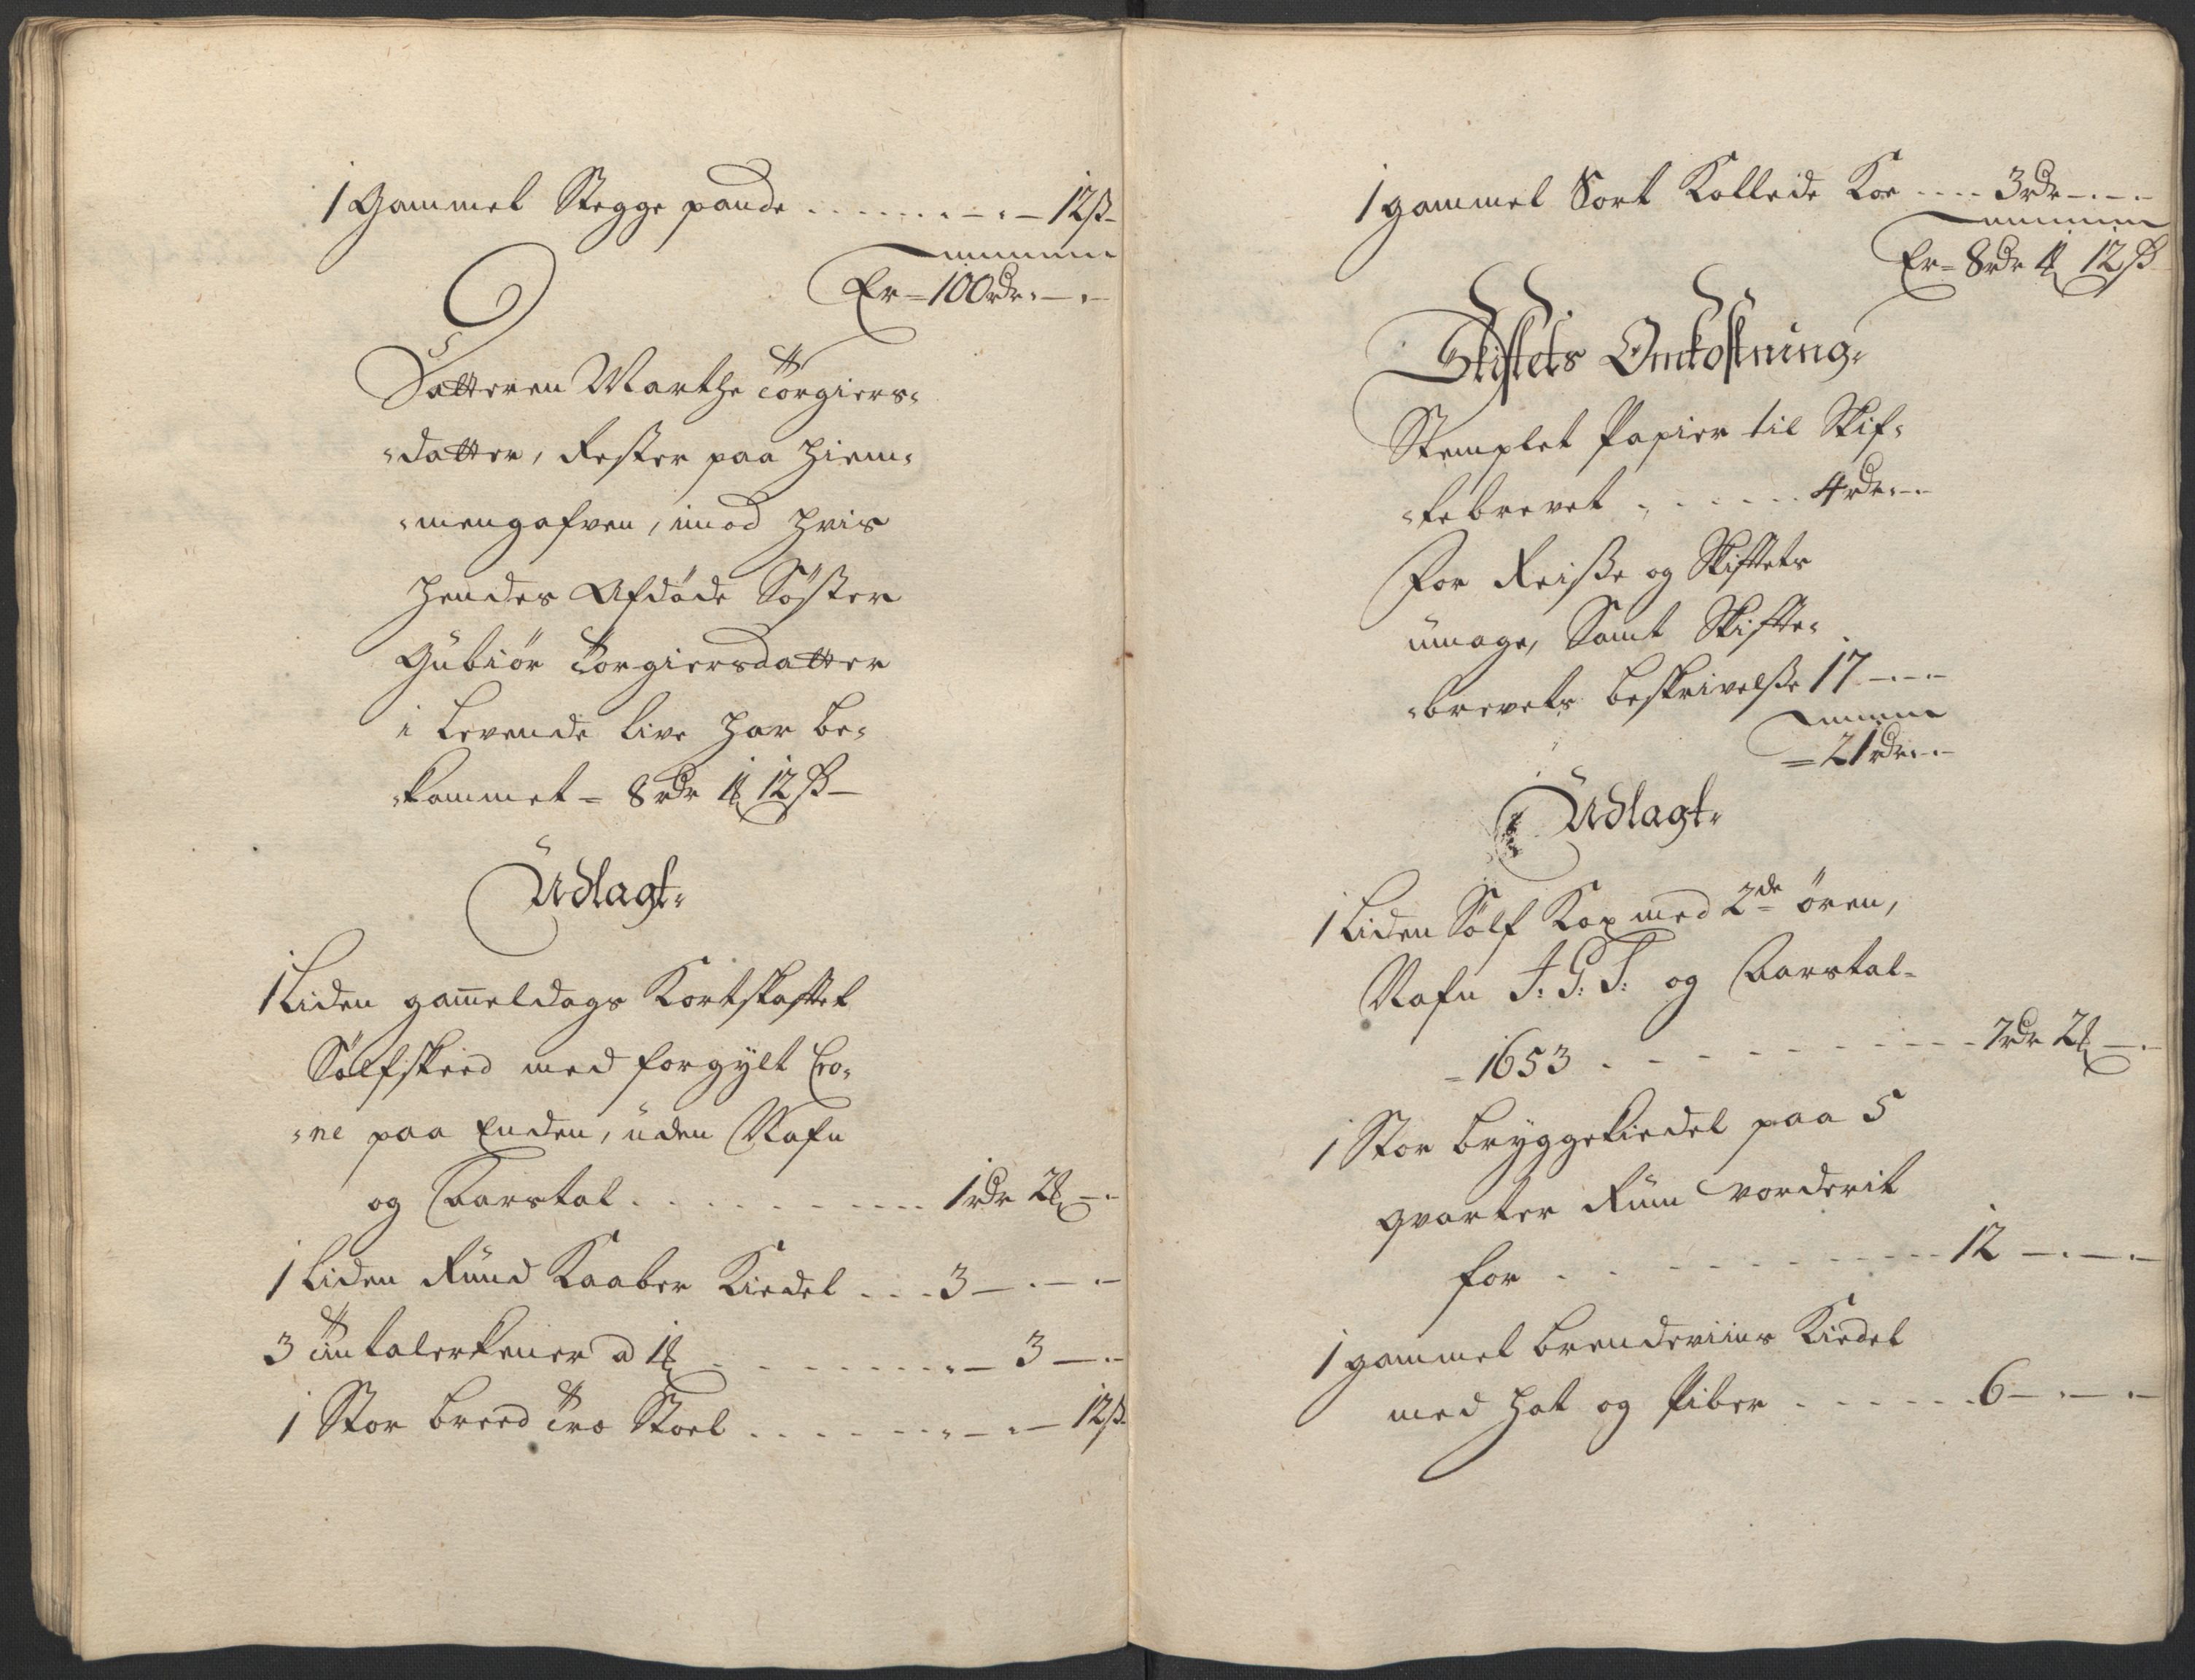 1 Gammel Stegge pande . . . . . . . – . – 12 ß –
Er = 100 rdr. – . –
Datteren Marthe Torgiers=
=datter, Rester paa hiem=
=mengafven, imod hvis
hendes Afdöde Söster
Gubiör Torgiersdatter
i Levende live har be=
=kommet = 8 rdr 1 ₰ 12 ß –
Udlagt=
1 Liden gam̄eldags Kortskafftet
Sölfskeed med forgylt Cro=
=ne paa Enden, uden Nafn
og Aarstal . . . . . . . . . . 1 rdr 2 ₰ – .
1 Liden Rund Kaaber Kiedel . . . 3 – . – . –
3 Tin talerkener a 1 ₰ . . . . . . . . – 3 – . –
1 Stor breed Træ Stoel . . . . . . . – . – 12 ß
1 gammel Sort Kollede Koe . . . . 3 rdr – . – . –
Er = 8 rdr 1 ₰ 12 ß
Skiftets Omkostning=
Stemplet Papier til Skif=
=tebrevet . . . . . . . 4 rdr. – . –
For Reiße og Skiftets
umage, Samt Skifte=
=brevets beskrivelße 17 – . – . –
= 21 rdr. – . –
Udlagt=
1 Liden Sölf Kop med 2de ören,
Nafn J: G: S: og Aarstal=
= 1653 . . . . . . . . . . 7 rdr 2 ₰ – . –
1 Stor bryggekiedel paa 5
qvarter Rum vorderit
for . . . . . . . . . . 12 – . – . –
1 gammel brendeviins Kiedel
med hat og Piber . . . . . . . 6 – . – . –